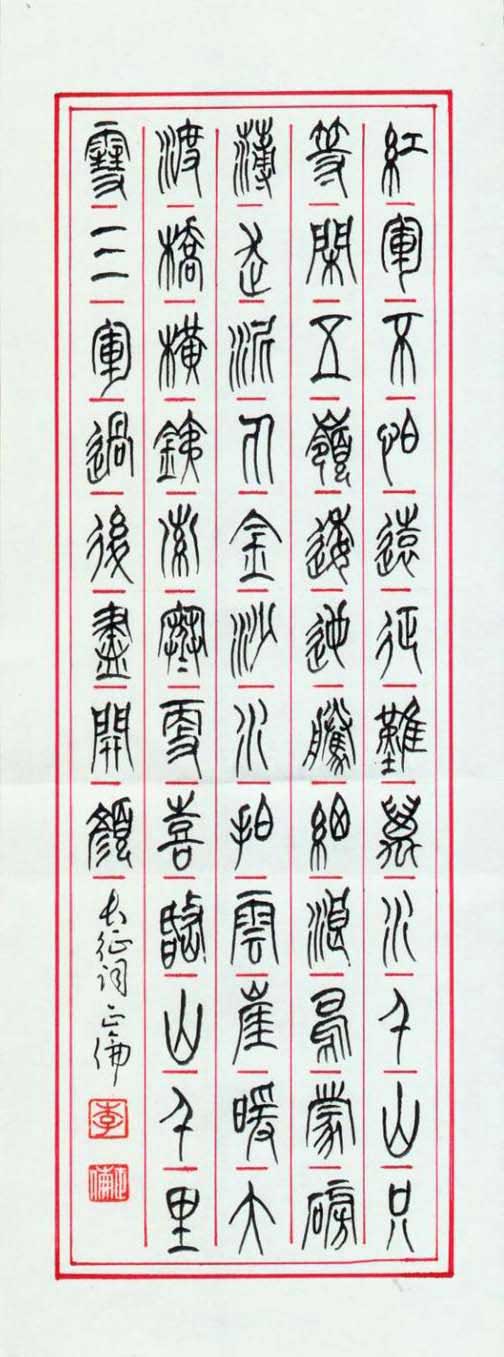 紅軍不怕遠征難萬水千山只
等閑五嶺逶迤騰細浪烏蒙磅
薄走泥丸金沙水拍雲崖暖大
渡橋橫鐵索寒更喜岷山千里
雪三軍過後盡開顏 长征詞
李